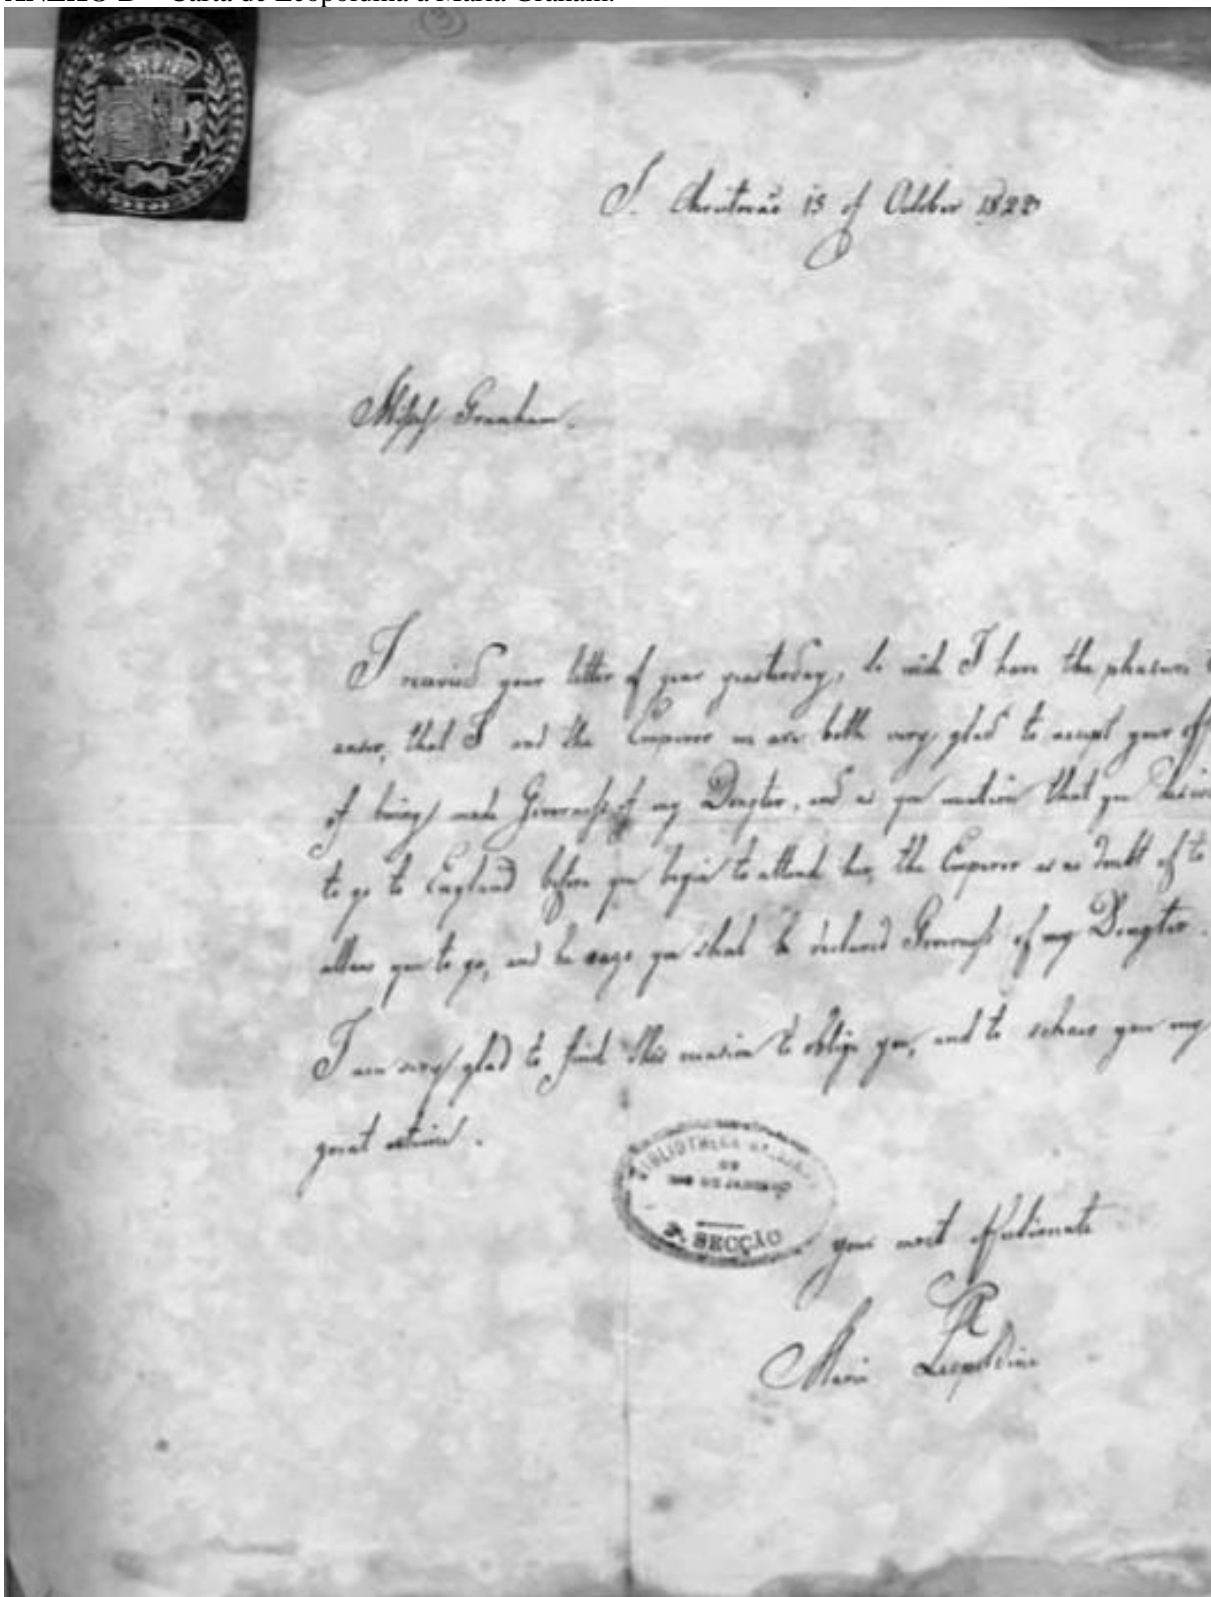 ANEXO B – Carta de Leopoldina a Maria Graham.
S. Christovaõ 15 of October 1823
Graaham.
I received your letter of your yesterday, to wich I have the pleasure t
anser, that I and the Emperor we are both very glad to accept your off
of being made Governess of my Doughter, and as you mention that you desire
to go to England before you begin to attend her, the Emperor as no doubt of to
allow you to go, and he says you shal be declared Governess of my Doughter.
I am very glad to find this occasion to oblige you, and to you my
great esteem.
BIBLIOTHECA NACIONAL
DE
RIO DE JANEIRO
SECÇÃO
your most affectionate
Maria Leopoldina